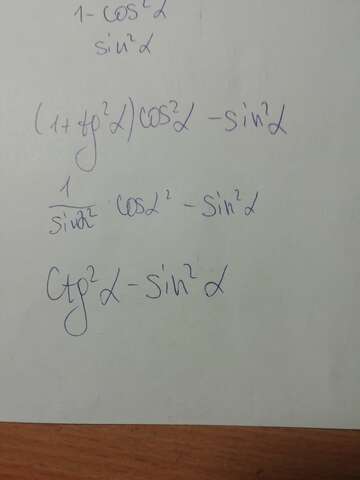 1 - cos²α
sin²α
(1 + tg²α)cos²α - sin²α
1/sinα² · cosα² - sin²α
Ctg²α - sin²α